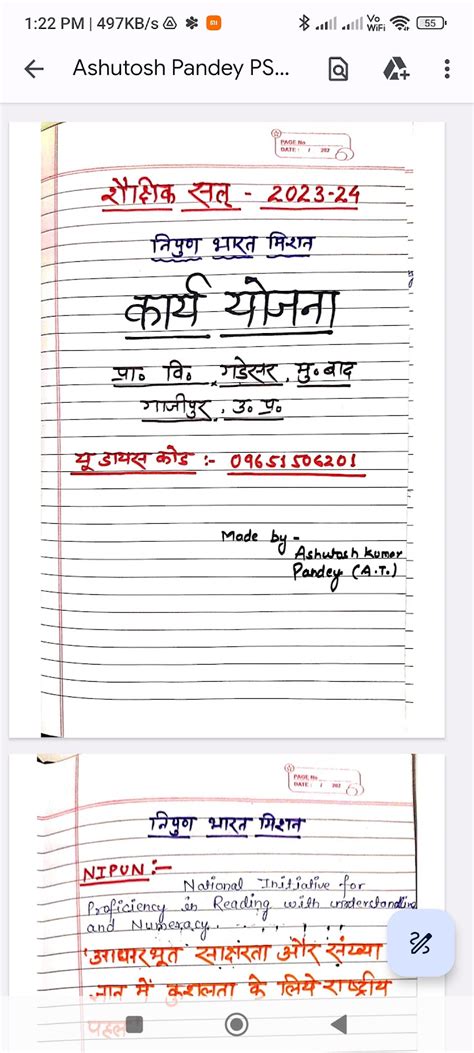 1:22 PM | 497KB/s
Vo WiFi 55
Ashutosh Pandey PS...
PAGE No.
DATE: / / 202
शैक्षिक सत्र - 2023-24
निपुण भारत मिशन
कार्य योजना
प्रा० वि० गडेसर, मु०बाद
गाजीपुर, उ० प्र०
यू डायस कोड :- 09651506201
Made by -
Ashutosh Kumar
Pandey (A.T.)
PAGE No.
DATE: / / 202
निपुण भारत मिशन
NIPUN :-
National Initiative for
Proficiency in Reading with understanding
and Numeracy.
'आधारभूत साक्षरता और संख्या
ज्ञान में कुशलता के लिये राष्ट्रीय
पहल